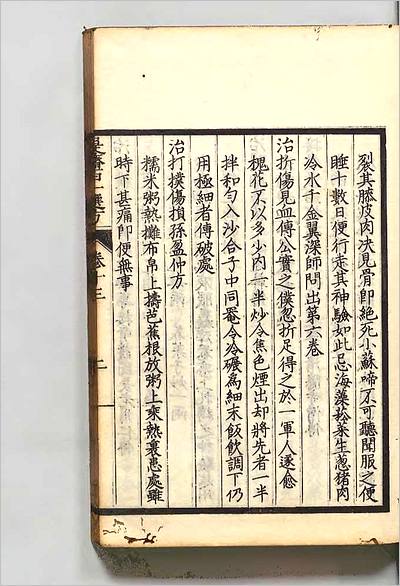 裂其膝皮肉决見骨即絶死小蘇啼不可聽聞服之便
睡十數日便行走其神驗如此忌海藻菘菜生葱猪肉
冷水千金翼深師同出第六卷
治折傷見血傳公實之僕忽折足得之於一軍人遂愈
槐花不以多少内一半炒令焦色煙出却將先者一半
拌和匀入沙合子中同罨令冷碾爲細末飯飲調下仍
用極細者傅破處
治打撲傷損孫盈仲方
糯米粥熱攤布帛上擣芭蕉根放粥上乘熱裹患處雖
時下甚痛即便無事
是齋百一選方 卷十三